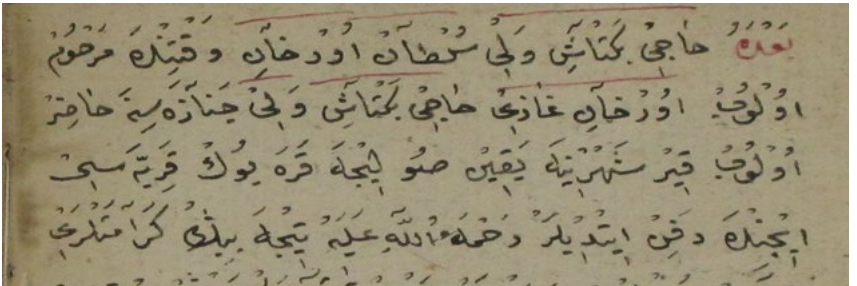 بعده حاجى بكتاش ولى سلطان اورخان وقتنده مرحوم
اولوب اورخان غازى حاجى بكتاش ولى جنازه سنه حاضر
اولوب قير شهرينه يقين صولیجه قره يوك قريه سى
ایچنده دفن ايتديلر رحمة الله عليه نيجه بيك كرامتلرى